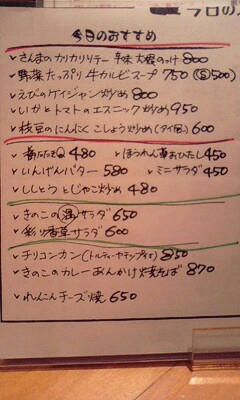 今日のおすすめ
・さんまのカリカリソテー 辛味大根のっけ 800
・野菜たっぷり牛カルビスープ 750 (Ⓢ500)
・えびのケイジャン炒め 800
・いかとトマトのエスニック炒め 950
・枝豆のにんにくこしょう炒め(タイ風) 600
480 ・ほうれん草おひたし 450
・いんげんバター 580 ・ミニサラダ 450
・ししとうとじゃこ炒め 480
・きのこの温サラダ 650
・彩り香草サラダ 600
・チリコンカン(トルティーヤチップ付き) 850
・きのこのカレーあんかけ焼そば 870
・れんこんチーズ焼 650